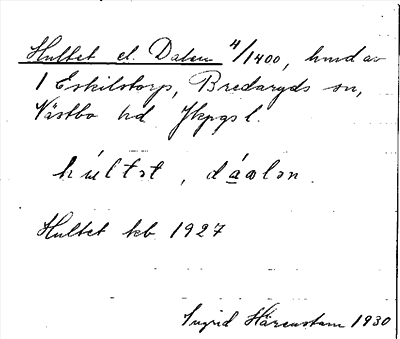 Hultet el. Dalen 4/1400, hmd av
1 Eskilstorp, Bredaryds sn,
Västbo hd Jkpgs l.
húltət, dáalən.
Hultet kb 1927
Ingrid Härenstam 1930